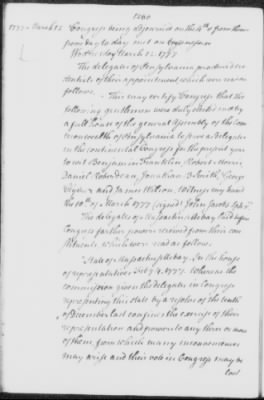 1777 March 12 Congress being adjourned on the 4th of from them
from day to day met on
Wednesday March 12. 1777
The delegates of Pensylvania produced cre
dentials of their appointment, which were read as
follows.
This may certify Congress that the
following gentlemen were duly elected by
a full house of the general Assembly of the Com
monwealth of Pensylvania to serve as delegates
in the continental Congress for the present year
to wit Benjamin Franklin Robert Morris
Daniel Roberdeau, Jonathan B. Smith,
Clymer and James Wilson. Witness my hand
the 10th of March 1777 signed John Jacobs
The delegates of Massachusetts bay laid before
Congress farther powers received from their con
stituents which were read as follows.
State of Massachusetts bay. In the house
of representatives Feby 4. 1777. Whereas the
commission given the delegates in Congress
representing this state by a resolve of the tenth
of December last confines the exercise of their
representation and power to any three or more
of them from which many inconveniences
may arise and their vote in Congress may be
lost